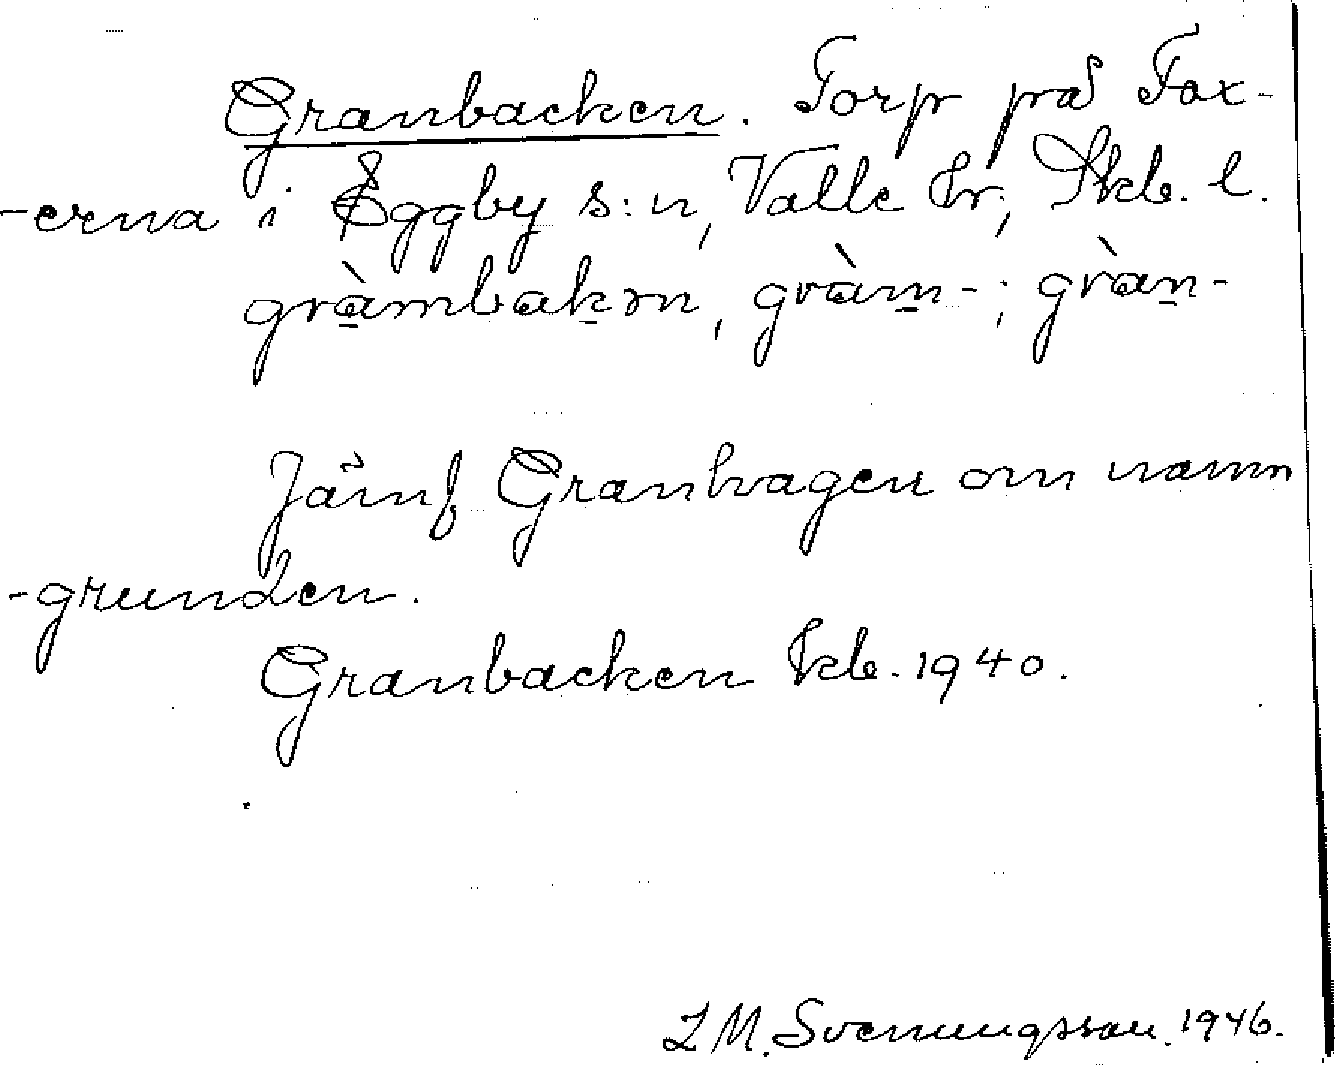 Granbacken. Torp på Fox-
-erna i Eggby s:n, Valle hr, Skb. l.
gràmbakən, gràm-; gràn-
Jämf Granhagen om namn
-grunden.
Granbacken kb. 1940.
L M. Svenungsson. 1946.